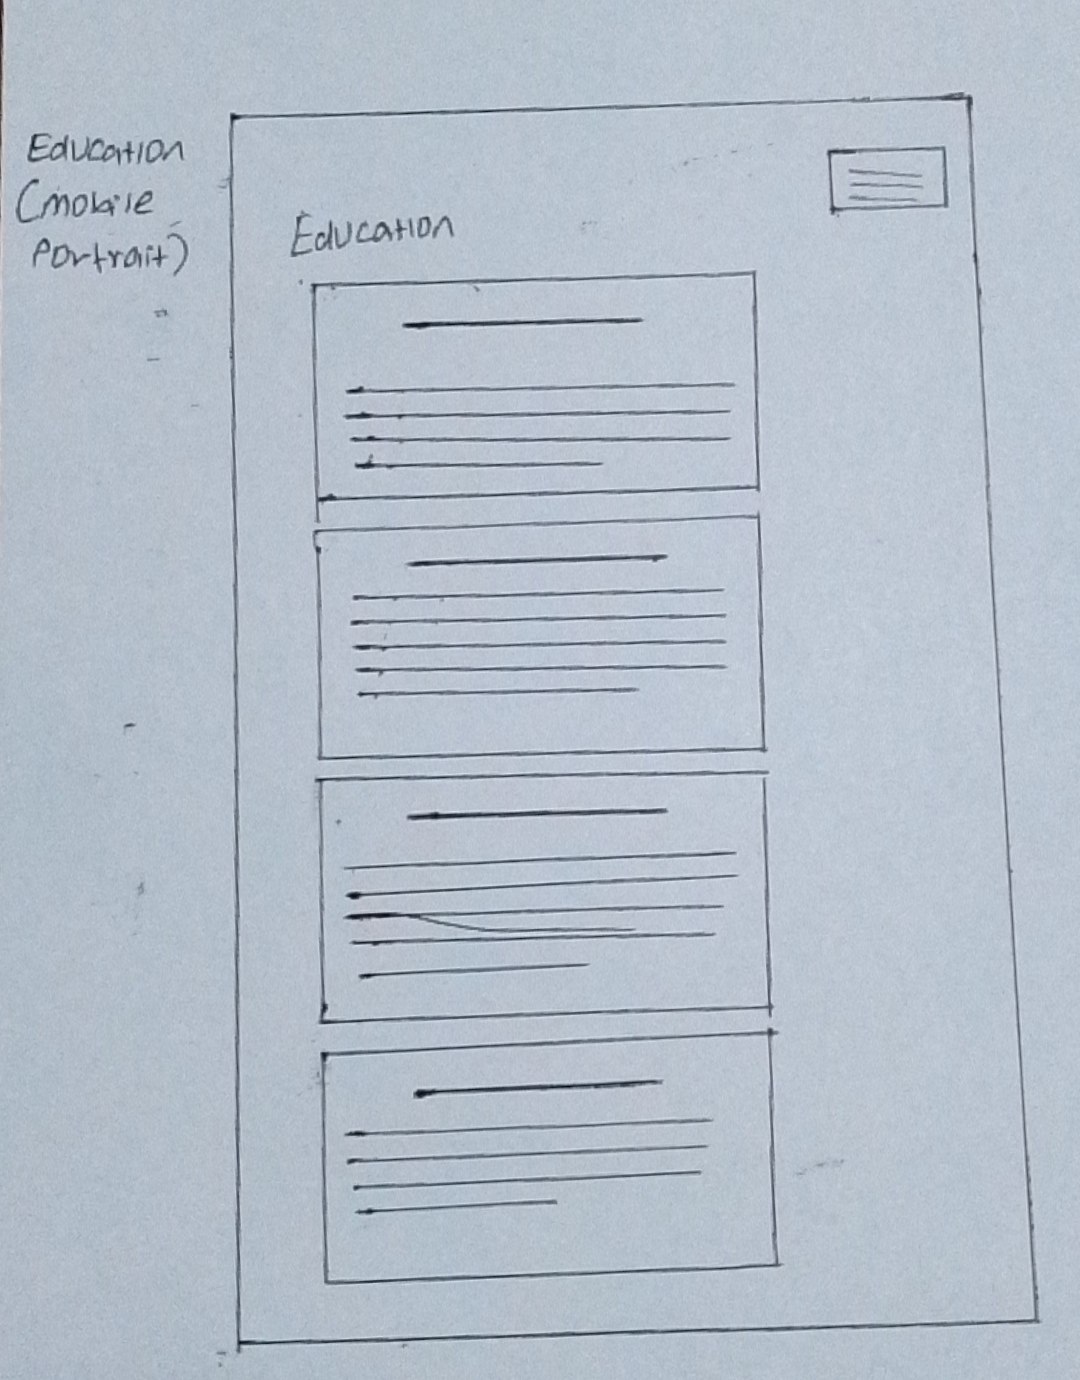 Education
(mobile
Portrait)
Education